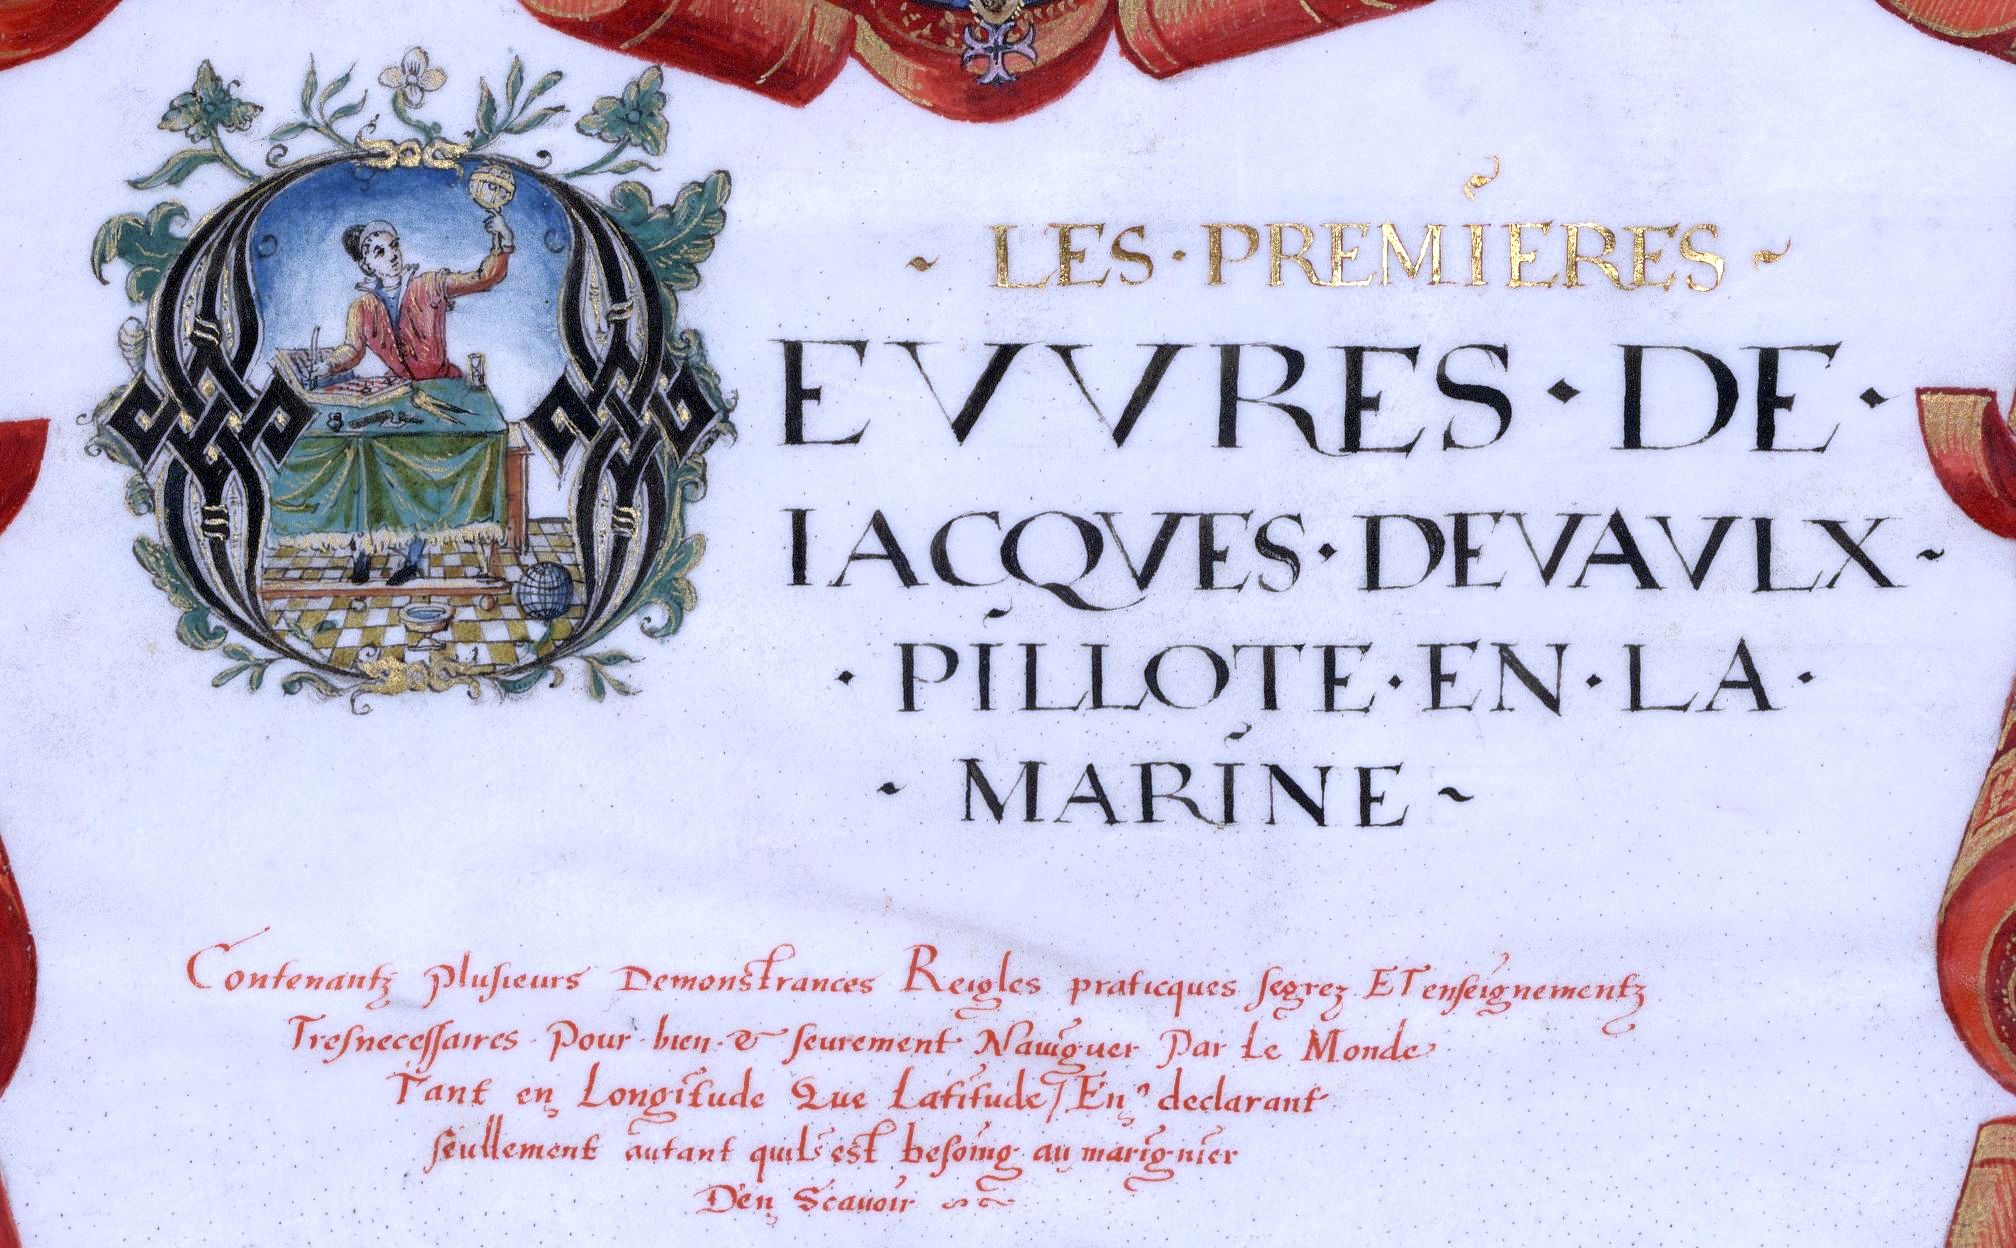 ~ LES · PREMIERES ~
OEVVRES · DE ·
IACQVES · DEVAVLX ~
· PILLOTE · EN · LA ·
~ MARINE ~
Contenantz plusieurs Demonstrances Reigles praticques segrez ET enseignementz
Tresnecessaires Pour bien & seurement Nauiguer Par Le Monde
Tant en Longitude Que Latitude / En declarant
seullement autant quil est besoing au marignier
D'en Scauoir ~~